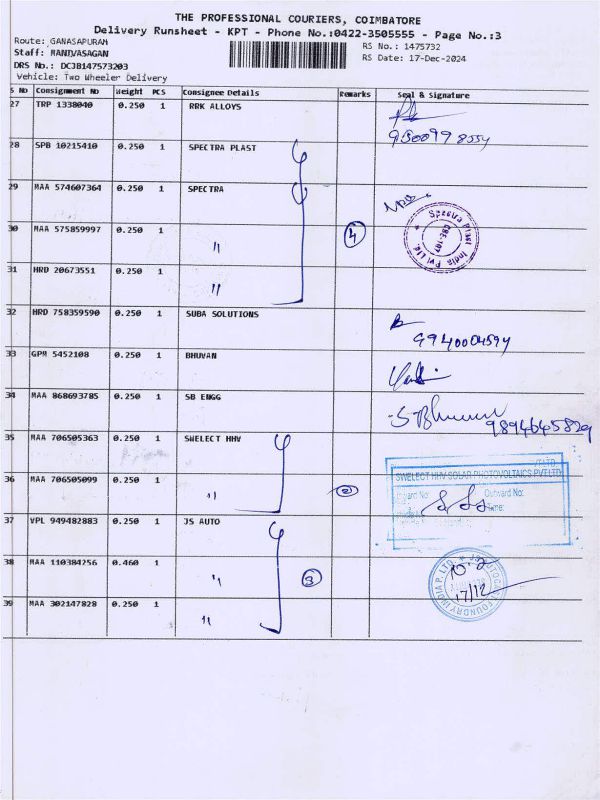 THE PROFESSIONAL COURIERS, COIMBATORE
Delivery Runsheet - KPT - Phone No.:0422-3505555 - Page No.:3
Route: GANASAPURAM
RS No.: 1475732
Staff: MANIVASAGAN
RS Date: 17-Dec-2024
DRS No.: DCJB147573203
Vehicle: Two Wheeler Delivery
S No Consignment No Weight PCS Consignee Details Remarks Seal & Signature
27 TRP 1338040 0.250 1 RRK ALLOYS
28 SPB 10215410 0.250 1 SPECTRA PLAST
29 MAA 574607364 0.250 1 SPECTRA
30 MAA 575859997 0.250 1 " 4
Spectra Plast India Pvt Ltd.
31 HRD 20673551 0.250 1 "
32 HRD 758359590 0.250 1 SUBA SOLUTIONS
9940004594
33 GPM 5452108 0.250 1 BHUVAN
34 MAA 868693785 0.250 1 SB ENGG
9894645829
35 MAA 706505363 0.250 1 SWELECT HHV
SWELECT HHV SOLAR PHOTOVOLTAICS PVT LTD
36 MAA 706505099 0.250 1 " 2
Outward No:
37 VPL 949482883 0.250 1 JS AUTO
38 MAA 110384256 0.460 1 " 3
10.2
17/12
39 MAA 302147828 0.250 1 "